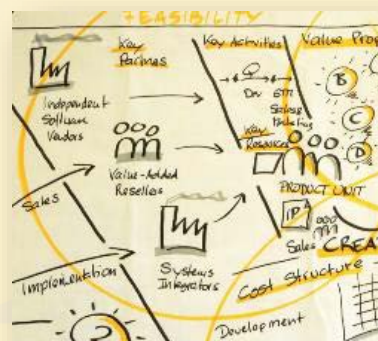 FEASIBILITY
Key
Partners
Key Activities
Value Prop
Independent
Software
Vendors
Dev
GTM
Sales &
Marketing
B
C
D
Key
Resources
Value-Added
Resellers
Sales
PRODUCT UNIT
IP
Sales
CREA
Systems
Integrators
Implementition
Cost Structure
Development